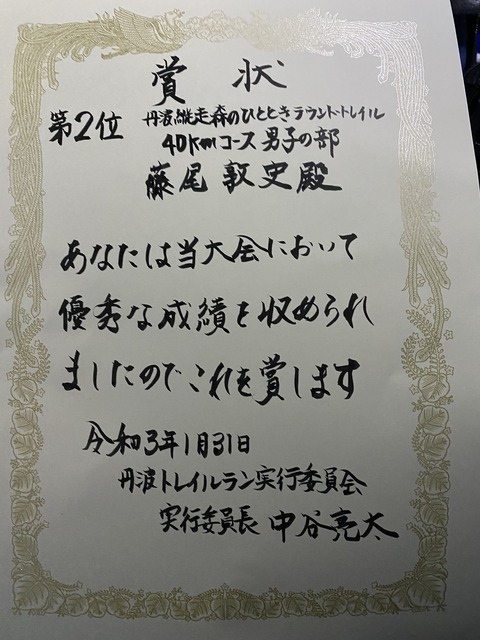 賞状
第2位
丹波縦走森のひとときラウンド・トレイル
40kmコース 男子の部
藤尾敦史殿
あなたは当大会において
優秀な成績を収められ
ましたのでこれを賞します
令和3年1月31日
丹波トレイルラン実行委員会
実行委員長 中谷亮太